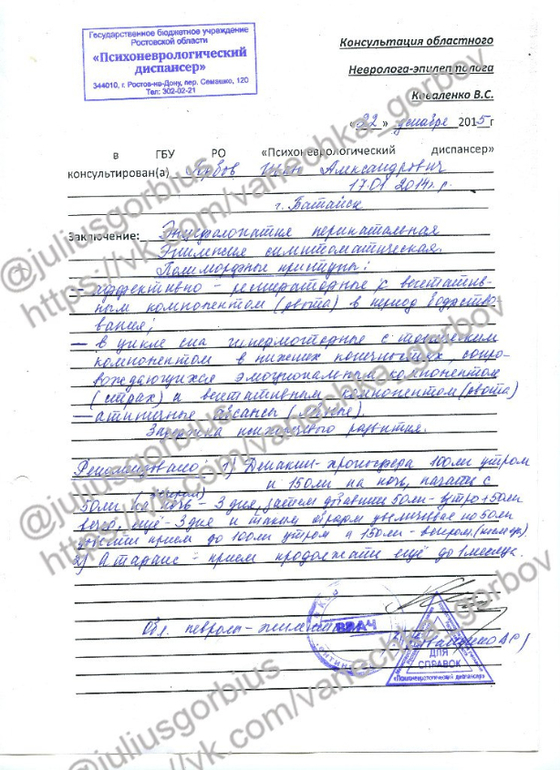 Государственное бюджетное учреждение
Ростовской области
«Психоневрологический
диспансер»
344010, г. Ростов-на-Дону, пер. Семашко, 120
Тел: 302-02-21
Консультация областного
Невролога-эпилептолога
Коваленко В.С.
«22» декабря 2015г
в ГБУ РО «Психоневрологический диспансер»
консультирован(а) Горбов Александрович
17.01 2014г.р.
г. Батайск
Заключение: Энцефалопатия перинатальная
Эпилепсия симптоматическая.
Полиморфные приступы:
— аффективно - респираторные с вегетатив-
ным компонентом (рвота) в период бодрство-
вания;
— в цикле сна гипермоторные с тоническим
компонентом в нижних конечностях, сопро-
вождающихся эмоциональным компонентом
(страх) и вегетативным компонентом (рвота)
— атипичные абсансы
Задержка психоречевого развития.
Рекомендовано: 1) Депакин-хроносфера 100мг утром
и 150мг на ночь, начать с
50мг на ночь - 3 дня, затем 50мг-утро+50мг
вечер, ещё - 3 дня и таким образом увеличивая по 50мг
прием до 100мг утром и 150мг - вечером.
2) Атаракс - прием продолжать ещё до 1 месяца.
Обл. невролог-эпилептолог
ВРАЧ
ДЛЯ
СПРАВОК
«Психоневрологический диспансер»
@juliusgorbius
https://vk.com/vanechka_gorbov
@juliusgorbius
https://vk.com/vanechka_gorbov
@juliusgorbius
https://vk.com/vanechka_gorbov